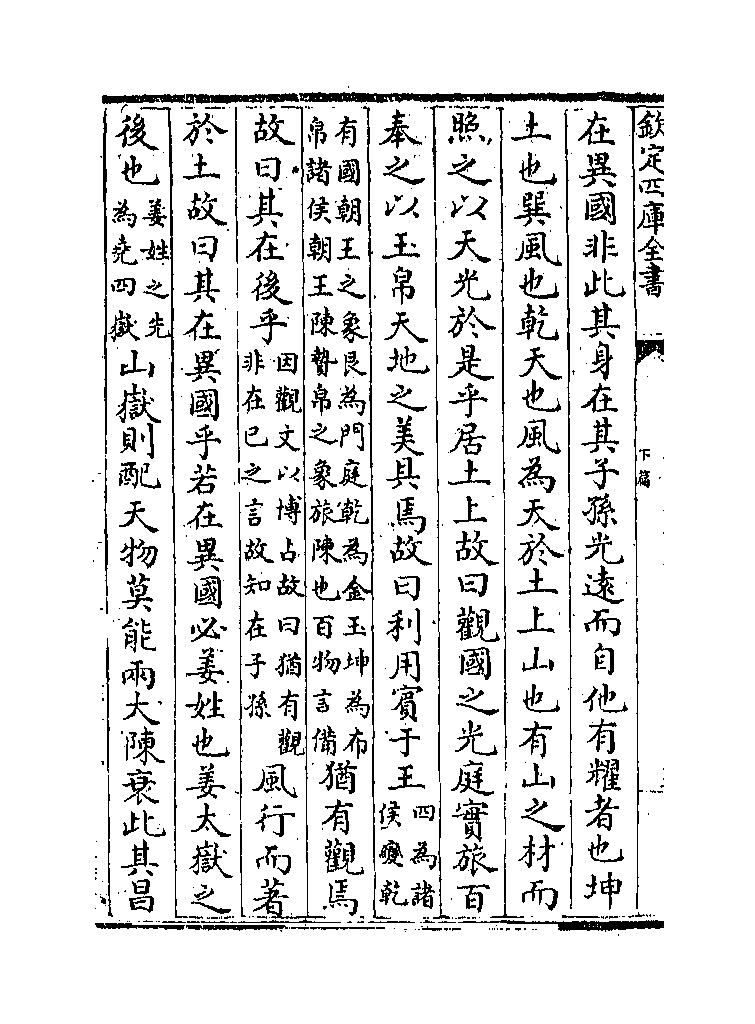 欽定四庫全書
下篇
在異國非此其身在其子孫光遠而自他有耀者也坤
土也巽風也乾天也風為天於土上山也有山之材而
照之以天光於是乎居土上故曰觀國之光庭實旅百
奉之以玉帛天地之美具焉故曰利用賓于王四為諸侯變乾
有國朝王之象艮為門庭乾為金玉坤為布帛諸侯朝王陳贄帛之象旅陳也百物言備猶有觀焉
故曰其在後乎因觀文以博占故曰猶有觀非在已之言故知在子孫風行而著
於土故曰其在異國乎若在異國必姜姓也姜太嶽之
後也姜姓之先為堯四嶽山嶽則配天物莫能兩大陳衰此其昌